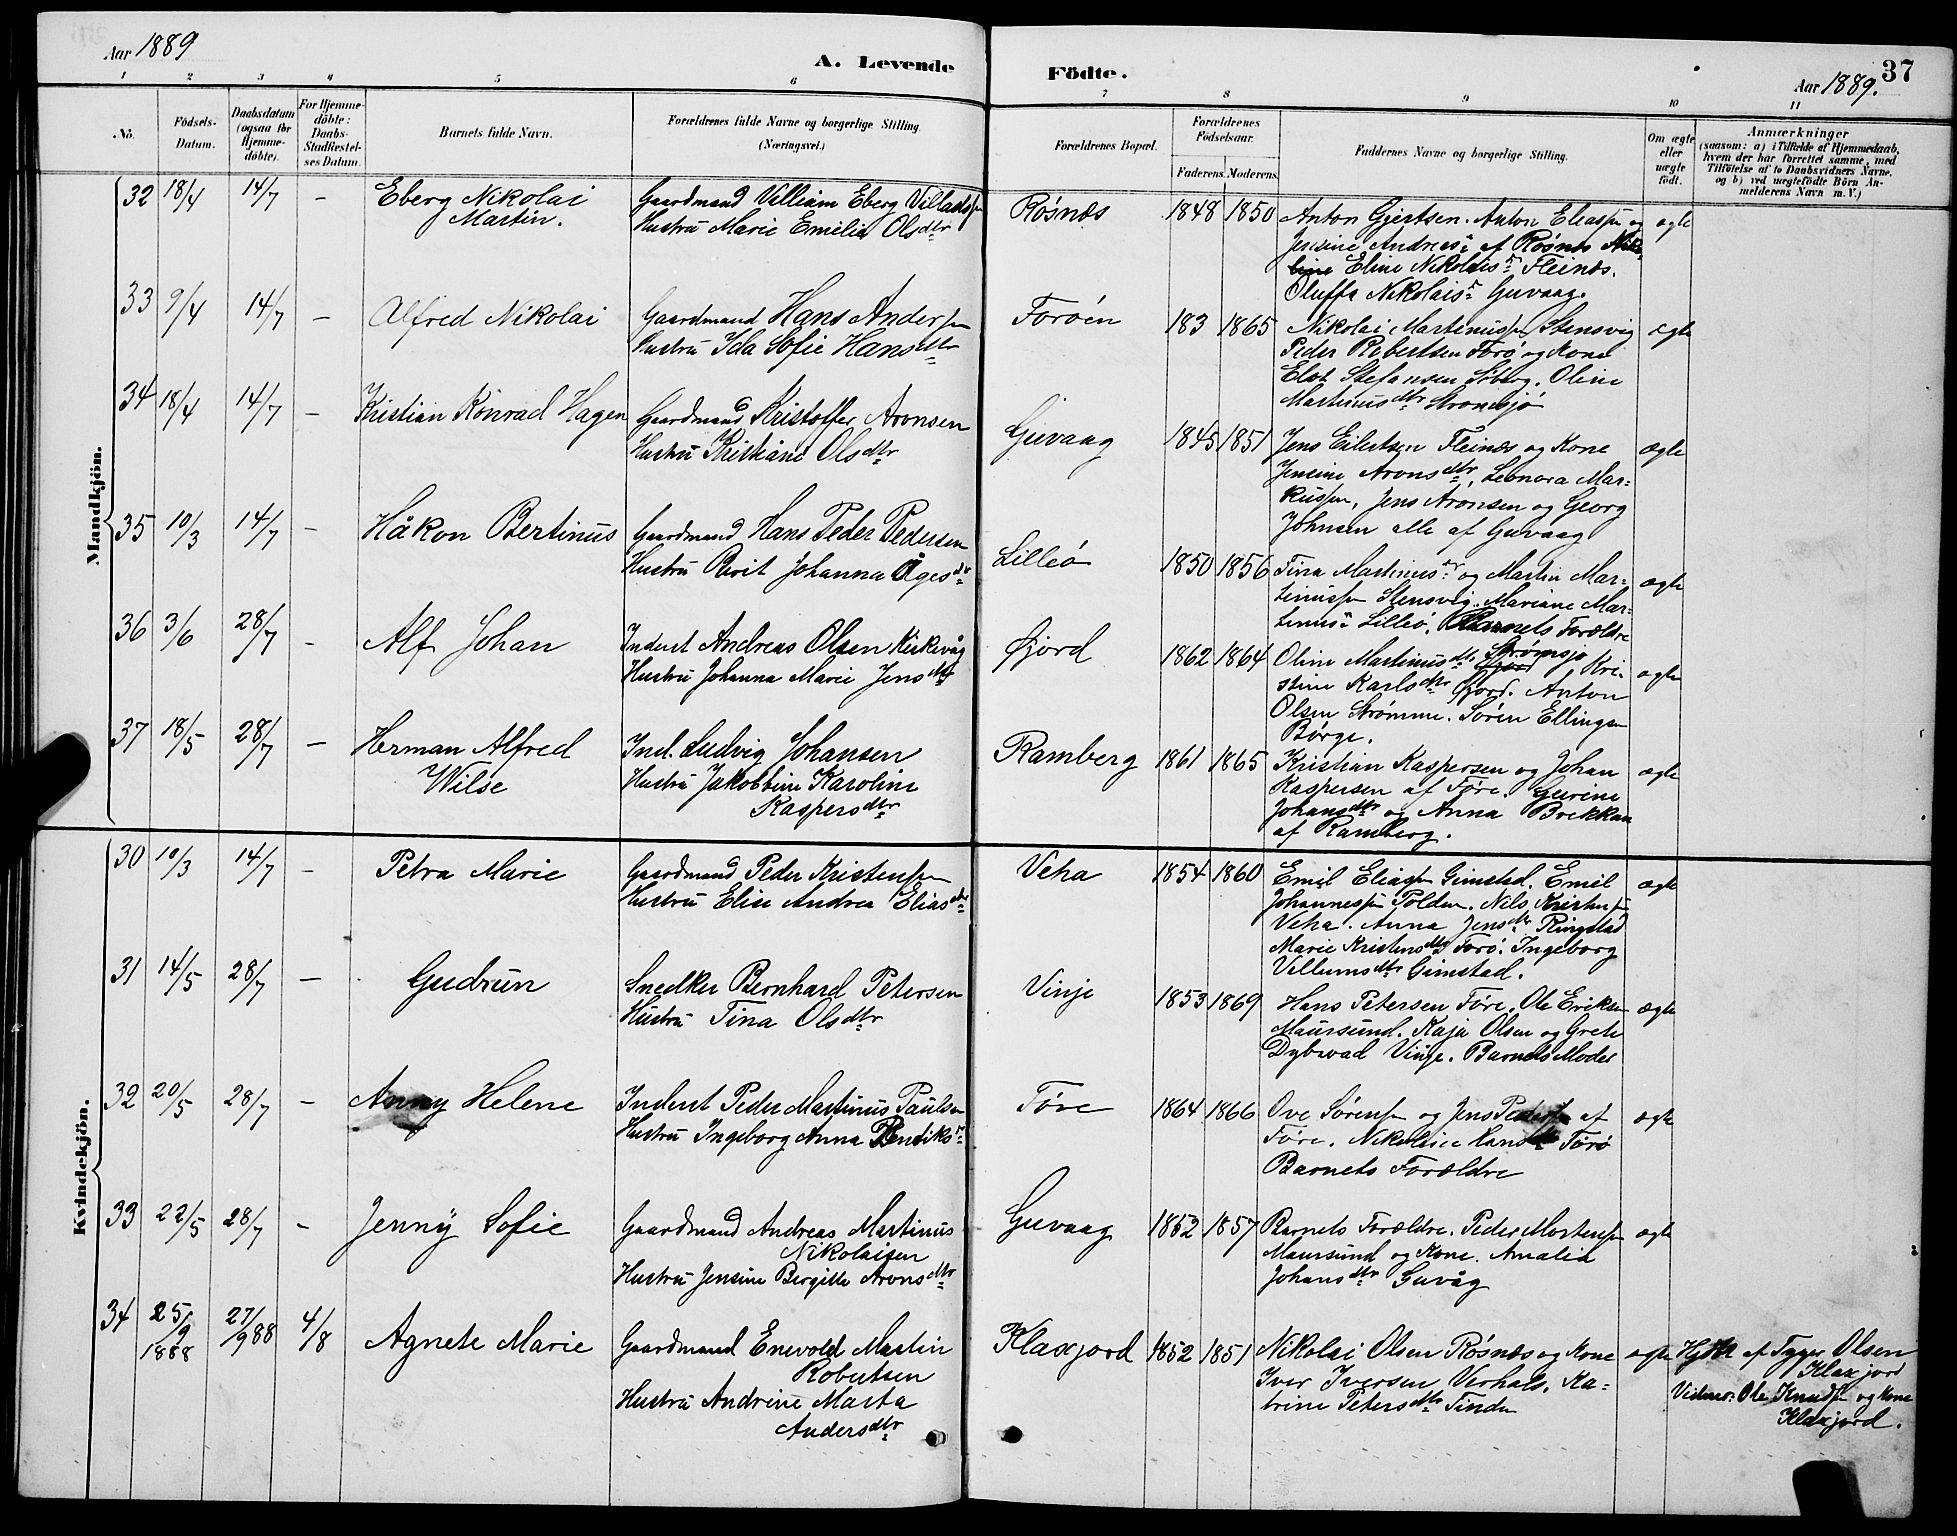 Aar 1889
A. Levende Födte.
Aar 1889. 37
1 2 3 4 5 6 7 8 9 10 11
No.
Födsels-Datum.
Daabsdatum (ogsaa for Hjemme-döbte).
For Hjemme-döbte: Daabs-Stadfæstel-ses Datum.
Barnets fulde Navn.
Forældrenes fulde Navne og borgerlige Stilling. (Næringsvei.)
Forældrenes Bopæl.
Forældrenes Födselsaar.
Faderens. Moderens.
Faddernes Navne og borgerlige Stilling.
Om ægte eller uægte født.
Anmærkninger
(saasom: a) i Tilfælde af Hjemmedaab, hvem der har forrettet samme, med Tilföielse af to Daabsvidners Navne, og b) ved uægtefödte Börn An-melderens Navn m. V.)
Mandkjön.
32 18/4 14/7 – Eberg Nikolai Gaardmand Villiam Eberg Villadsn Røsnæs 1848 1850 Anton Gjertsen. Anton Eliasn og ægte
Martin. Hustru Marie Emilie Olsdtr Jensine Andreasn af Røsnæs
Eline Nikolaisn Fleinæs.
Oluffa Nikolaisn Guvaag.
33 9/4 14/7 – Alfred Nikolai Gaardmand Hans Andersn Forøen 183 1865 Nikolai Martinusn Stensvig ægte
Hustru Ida Sofie Hansdtr Peder Robertsen Forø og Kone
Stefansen Søberg. Oline
Martinusdtr
34 18/4 14/7 – Kristian Konrad Hagen Gaardmand Kristoffer Aronsen Guvaag 1845 1851 Jens Eilertsen Fleinæs og Kone ægte
Hustru Kristiane Olsdtr Jensine Aronsdtr, Leonora Mar-
kusn, Jens Aronsen og Georg
Johnsen alle af Guvaag
35 10/3 14/7 – Håkon Bertinus Gaardmand Hans Peder Pedersen Lilleø 1850 1856 Tina Martinusdr og Martin Mar- ægte
Hustru Berit Johanna Åges dr tinusn Stensvig. Mariane Mar-
tinusn Lilleø. Barnets Forældre
36 3/6 28/7 – Alf Johan Inderst Andreas Olsen Kirkevåg Øjord 1862 1864 Oline Martinusdtr Strømsjø Kri- ægte
Hustru Johanna Marie Jensdtr stine Karlsdtr Øjord. Anton
Olsen Strømme. Søren Ellingsen
Børge.
37 18/5 28/7 – Herman Alfred Ind. Ludvig Johansen Ramberg 1861 1865 Kristian Kaspersen og Johan ægte
Wilse Hustru Jakobbine Karoline Kaspersen af Føre.
Kaspersdtr Johansdtr og Anna Brekkan
af Ramberg.
Kvindekjön.
30 10/3 14/7 – Petra Marie Gaardmand Peder Kristensn Veha 1854 1860 Emil Eliasn Gimstad. Emil ægte
Hustru Elise Andrea Eliasdtr Johannesn Polden. Nils Kristensn
Veha. Anna Jensdtr Ringstad
Marie Kristensdtr Forø. Ingeborg
Villumsdtr Gimstad.
31 14/5 28/7 – Gudrun Snedker Bernhard Petersen Vinje 1853 1869 Hans Petersen Føre. Ole Eriksen ægte
Hustru Tina Olsdtr Maursund. Kaja Olsen og Grete
Dybwad Vinje. Barnets Moder
32 20/5 28/7 – Anny Helene Inderst Peder Martinus Paulsen Føre 1864 1866 Ove Sørensn og Jens Pedersn af ægte
Hustru Ingeborg Anna Bendiksn Føre. Nikoline Hansdtr Forø
Barnets Forældre
33 22/5 28/7 – Jenny Sofie Gaardmand Andreas Martinus Guvaag 1852 1857 Barnets Forældre. Peder Mortensn ægte
Nikolaisen Maursund og Kone. Amalia
Hustru Jensine Birgitte Aronsdtr Johansdtr Guvåg
34 25/9 1888 27/9 88 4/8 Agnete Marie Gaardmand Enevold Martin Klaxjord 1852 1851 Nikolai Olsen Røsnæs og Kone ægte Hjdbt af Tyger Olsen
Robertsen Iver Iversen Verhals, Ka- Klaxjord
Hustru Andrine Marta trine Petersdtr Tinden Vidner: Ole Knudsn og Kone
Andersdtr Klaxjord.